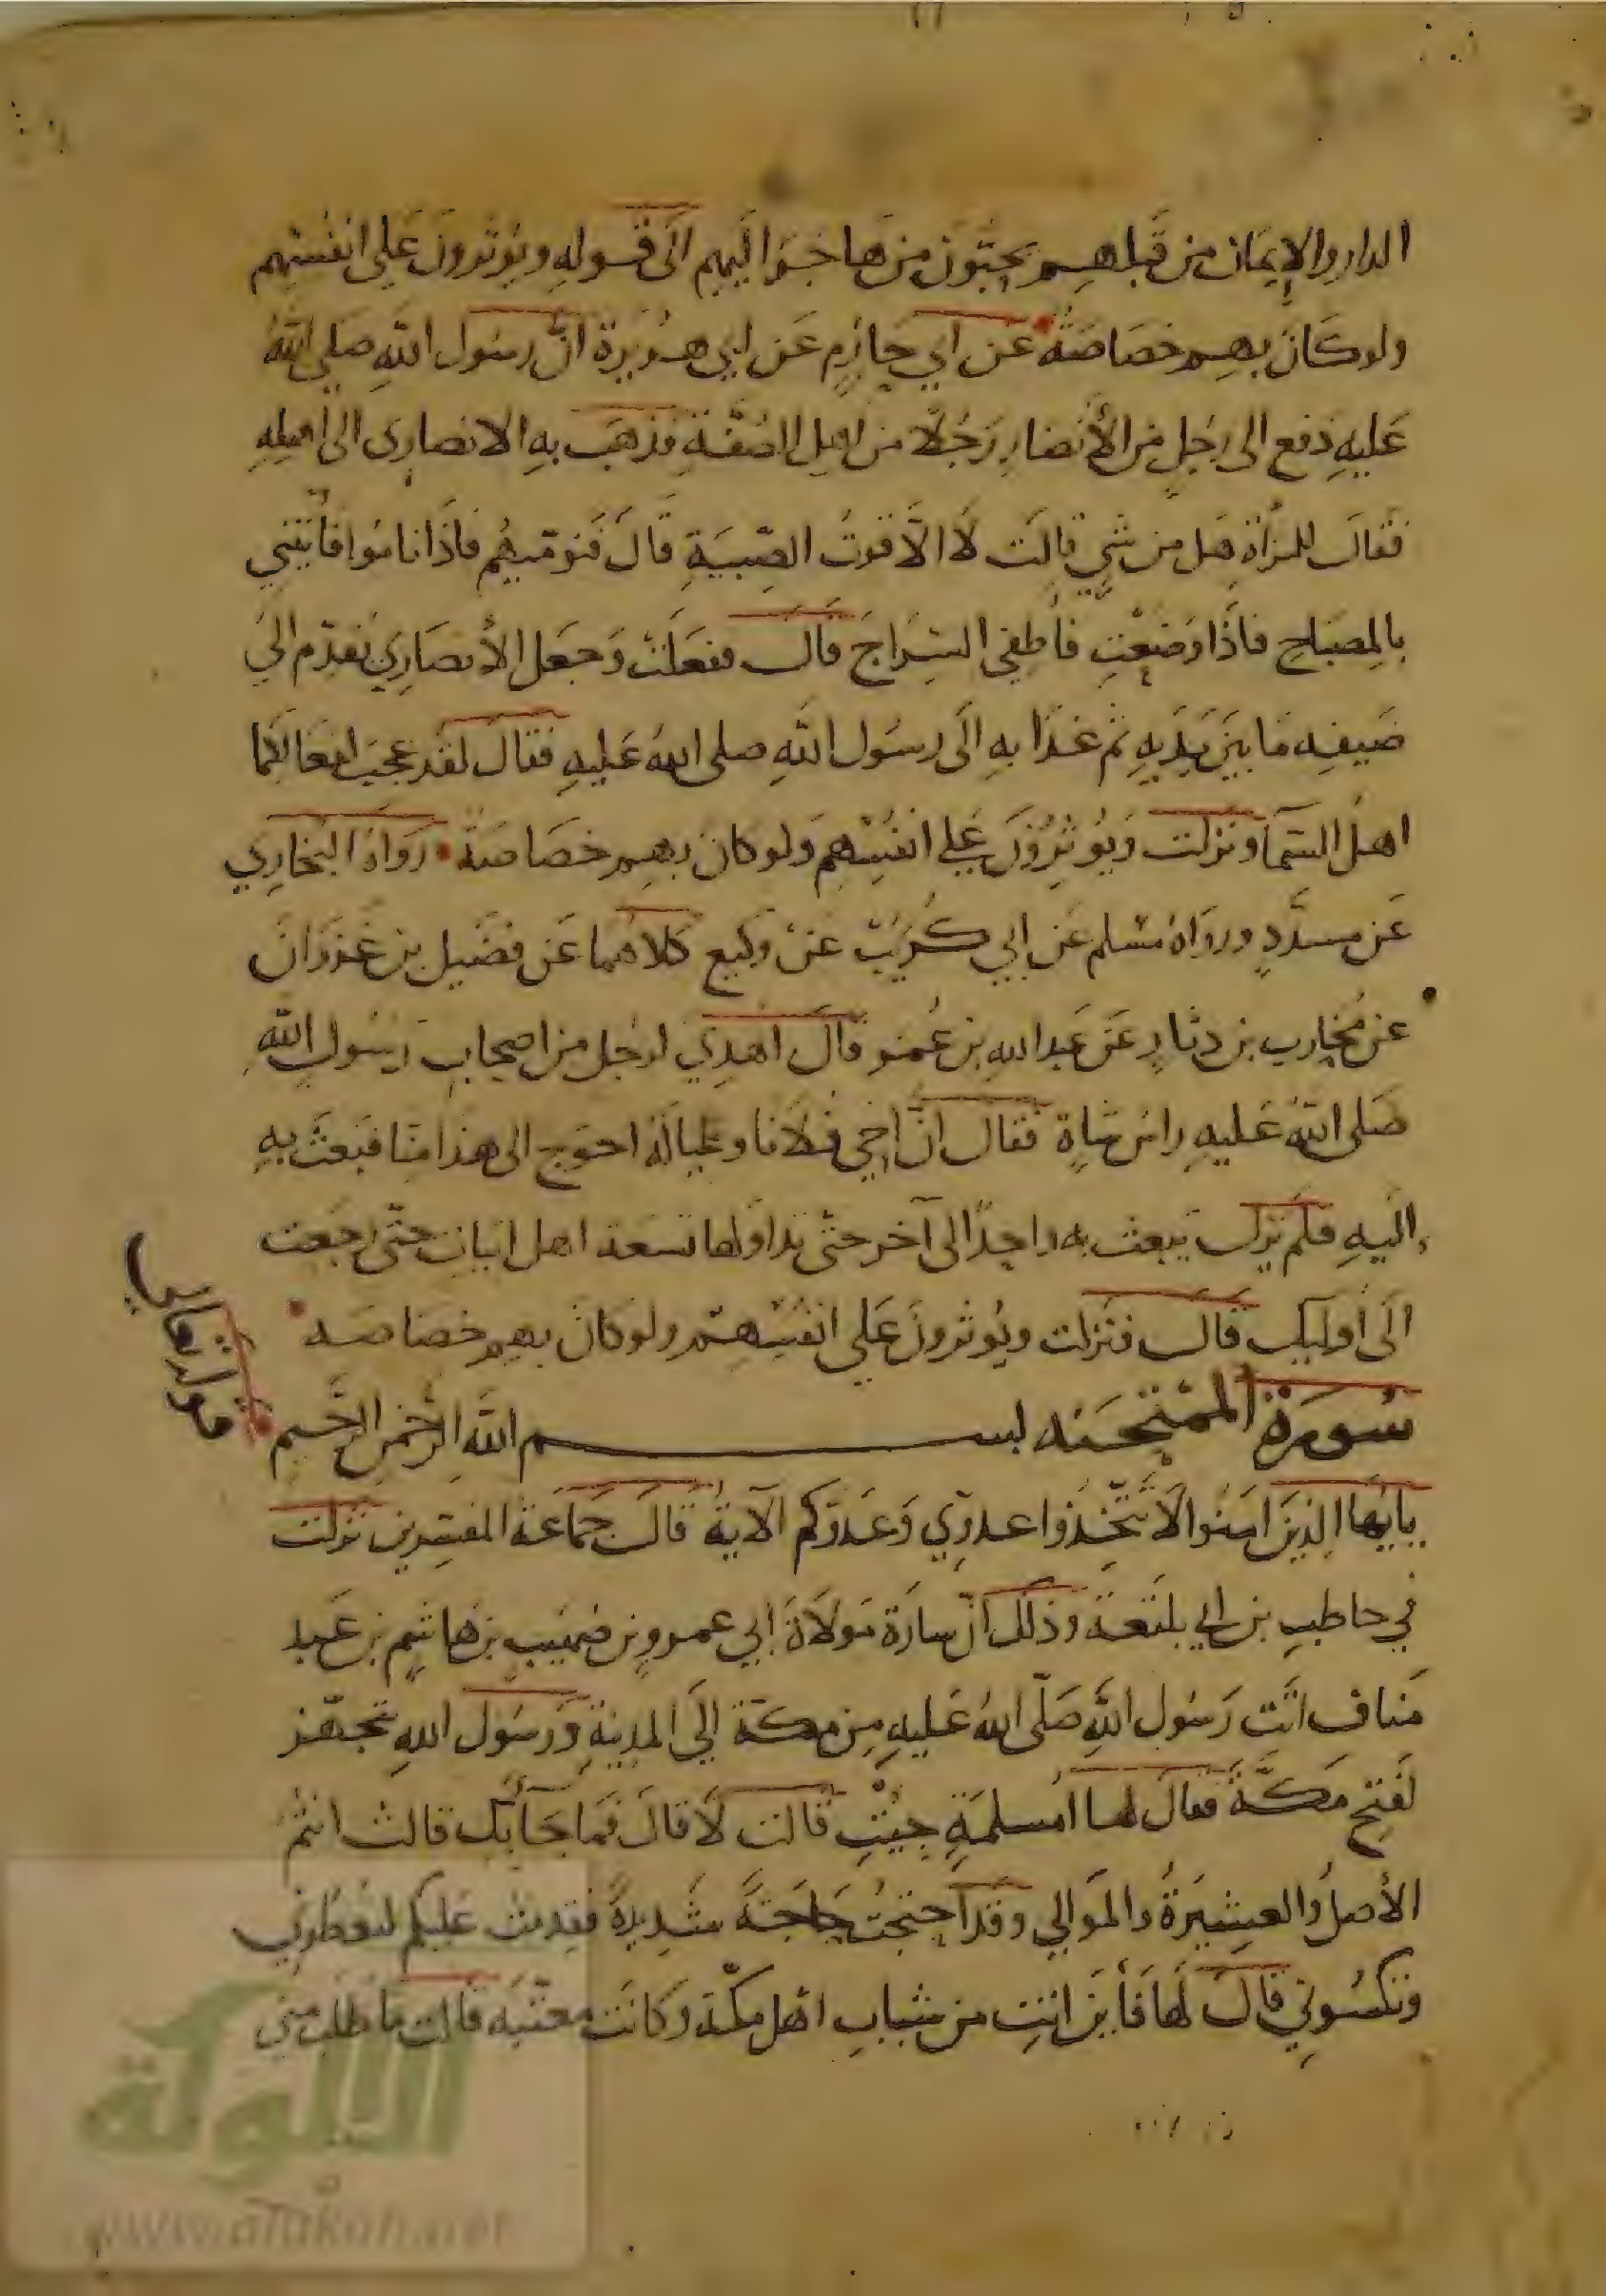 الدار والإيمان من قبلهم يحبون من هاجر اليهم الى قوله ويوثرون على انفسهم
ولو كان بهم خصاصة عن ابي حازم عن ابي هريرة ان رسول الله صلى الله
عليه دفع الى رجل من الأنصار رجلا من اهل الصفة فذهب به الانصاري الى اهله
فقال للمرأة هل من شي قالت لا الا قوت الصبية قال فنوميهم فاذا ناموا فأتيني
بالمصباح فاذا وضعت فأطفي السراج قال ففعلت وجعل الأنصاري يقدم الى
ضيفه ما بين يديه ثم غدا به الى رسول الله صلى الله عليه فقال لقد عجب لفعالكما
اهل السما ونزلت ويوثرون على انفسهم ولو كان بهم خصاصة رواه البخاري
عن مسدد ورواه مسلم عن ابي كريب عن وكيع كلاهما عن فضيل بن غزوان
عن محارب بن دثار عن عبد الله بن عمر قال اهدي لرجل من اصحاب رسول الله
صلى الله عليه راس شاة فقال ان اخي فلانا وعياله احوج الى هذا منا فبعث به
اليه فلم يزل يبعث به واحدا الى آخر حتى تداولها تسعة اهل ابيات حتى رجعت
الى أوليك قال فنزلت ويوثرون على انفسهم ولو كان بهم خصاصه
سورة الممتحنه بسم الله الرحمن الرحيم
يايها الذين امنوا لا تتخذوا عدوي وعدوكم الآية قال جماعة المفسرين نزلت
في حاطب بن ابي بلتعة وذلك ان سارة مولاة ابي عمرو بن ضهيب بن هاشم بن عبد
مناف اتت رسول الله صلى الله عليه من مكة إلى المدينة ورسول الله تجهز
لفتح مكة فقال لها أمسلمة جيت قالت لا قال فما جا بك قالت انتم
الأصل والعشيرة والموالي وقد احتجت حاجة شديدة فقدمت عليكم لتعطوني
وتكسوني قال لها فأين انت من شباب اهل مكة وكانت مغنيه قالت ما طلب مني
الألوكة
www.alukah.net